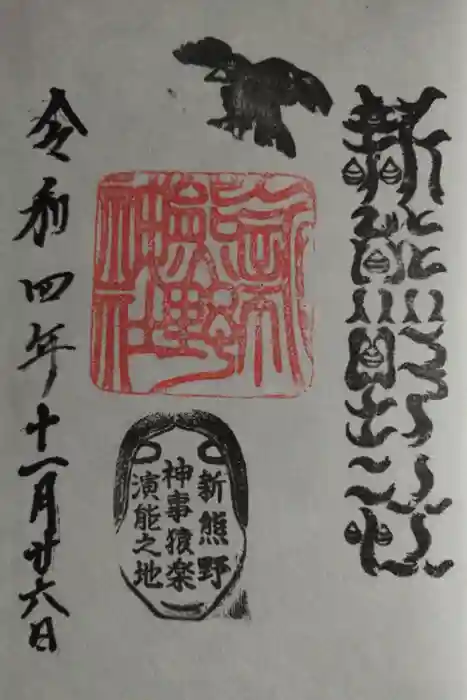 新熊野社
新
熊野
神社
新熊野
神事猿楽
演能之地
令和四年十一月廿六日